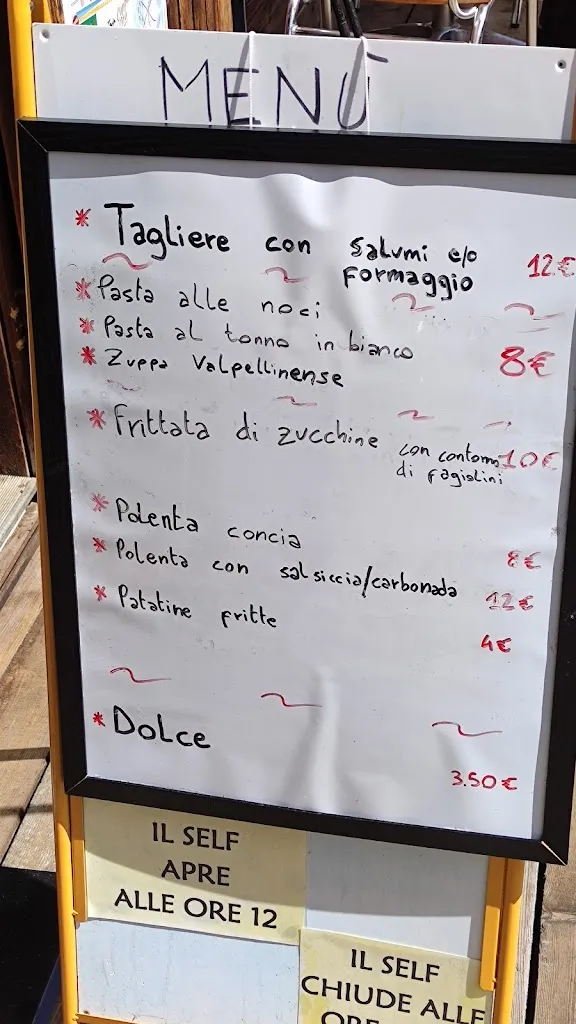 MENÙ
* Tagliere con salumi e/o
formaggio 12€
* Pasta alle noci
* Pasta al tonno in bianco 8€
* Zuppa Valpellinense
* Frittata di zucchine con contorno 10€
di fagiolini
* Polenta concia 8€
* Polenta con salsiccia/carbonada 12€
* Patatine fritte 4€
* Dolce 3.50€
IL SELF
APRE
ALLE ORE 12
IL SELF
CHIUDE ALLE
ORE